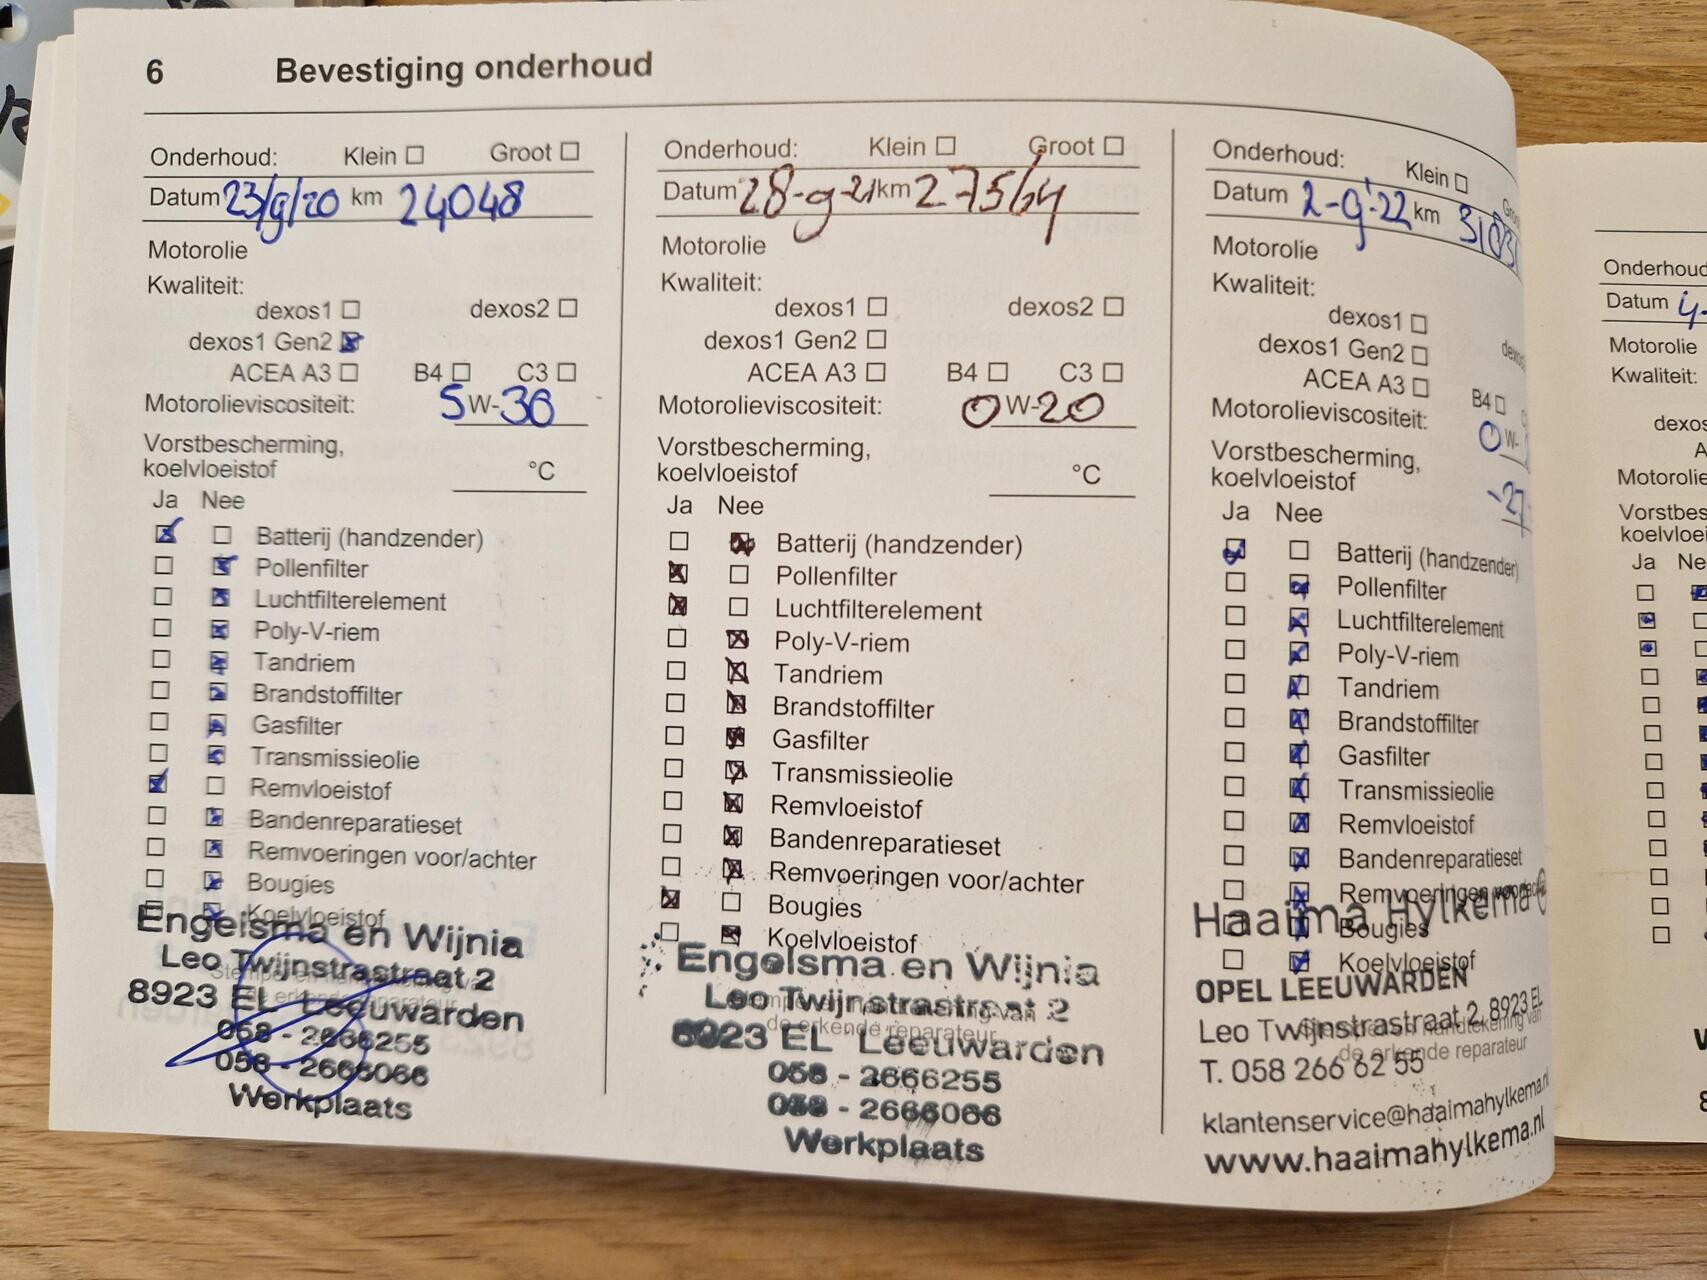 6 Bevestiging onderhoud
Onderhoud: Klein Groot
Datum 23/9/20 km 24048
Motorolie
Kwaliteit:
dexos1 dexos2
dexos1 Gen2
ACEA A3 B4 C3
Motorolieviscositeit: 5 W-30
Vorstbescherming,
koelvloeistof °C
Ja Nee
Batterij (handzender)
Pollenfilter
Luchtfilterelement
Poly-V-riem
Tandriem
Brandstoffilter
Gasfilter
Transmissieolie
Remvloeistof
Bandenreparatieset
Remvoeringen voor/achter
Bougies
Koelvloeistof
Engelsma en Wijnia
Leo Twijnstrastraat 2
8923 EL Leeuwarden
058 - 2666255
058 - 2666066
Werkplaats
Onderhoud: Klein Groot
Datum 28-9-21 km 27564
Motorolie
Kwaliteit:
dexos1 dexos2
dexos1 Gen2
ACEA A3 B4 C3
Motorolieviscositeit: 0 W-20
Vorstbescherming,
koelvloeistof °C
Ja Nee
Batterij (handzender)
Pollenfilter
Luchtfilterelement
Poly-V-riem
Tandriem
Brandstoffilter
Gasfilter
Transmissieolie
Remvloeistof
Bandenreparatieset
Remvoeringen voor/achter
Bougies
Koelvloeistof
Engelsma en Wijnia
Leo Twijnstrastraat 2
de erkende reparateur
8923 EL Leeuwarden
058 - 2666255
058 - 2666066
Werkplaats
Onderhoud: Klein
Datum 2-9-22 km
Motorolie
Kwaliteit:
dexos1
dexos1 Gen2
ACEA A3 B4
Motorolieviscositeit: 0 W-
Vorstbescherming,
koelvloeistof -27
Ja Nee
Batterij (handzender)
Pollenfilter
Luchtfilterelement
Poly-V-riem
Tandriem
Brandstoffilter
Gasfilter
Transmissieolie
Remvloeistof
Bandenreparatieset
Remvoeringen
Bougies
Koelvloeistof
Haaima Hylkema
OPEL LEEUWARDEN
Leo Twijnstrastraat 2, 8923 EL
de erkende reparateur
T. 058 266 62 55
klantenservice@haaimahylkema.nl
www.haaimahylkema.nl
Onderhoud
Datum
Motorolie
Kwaliteit:
dexos
Motorolie
Vorstbes
koelvloei
Ja Ne